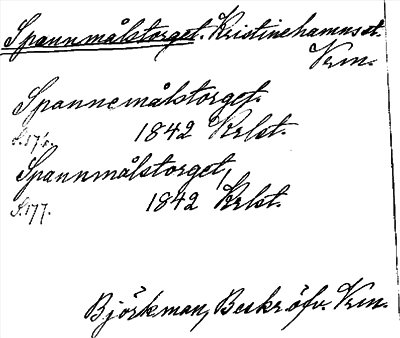 Spannmålstorget. Kristinehamns st.
Vrm.
Spannemålstorget.
1842 Krlst.
Spannmålstorget,
S. 177. 1842 Krlst.
Björkman, Beskr. öfv. Vrm.